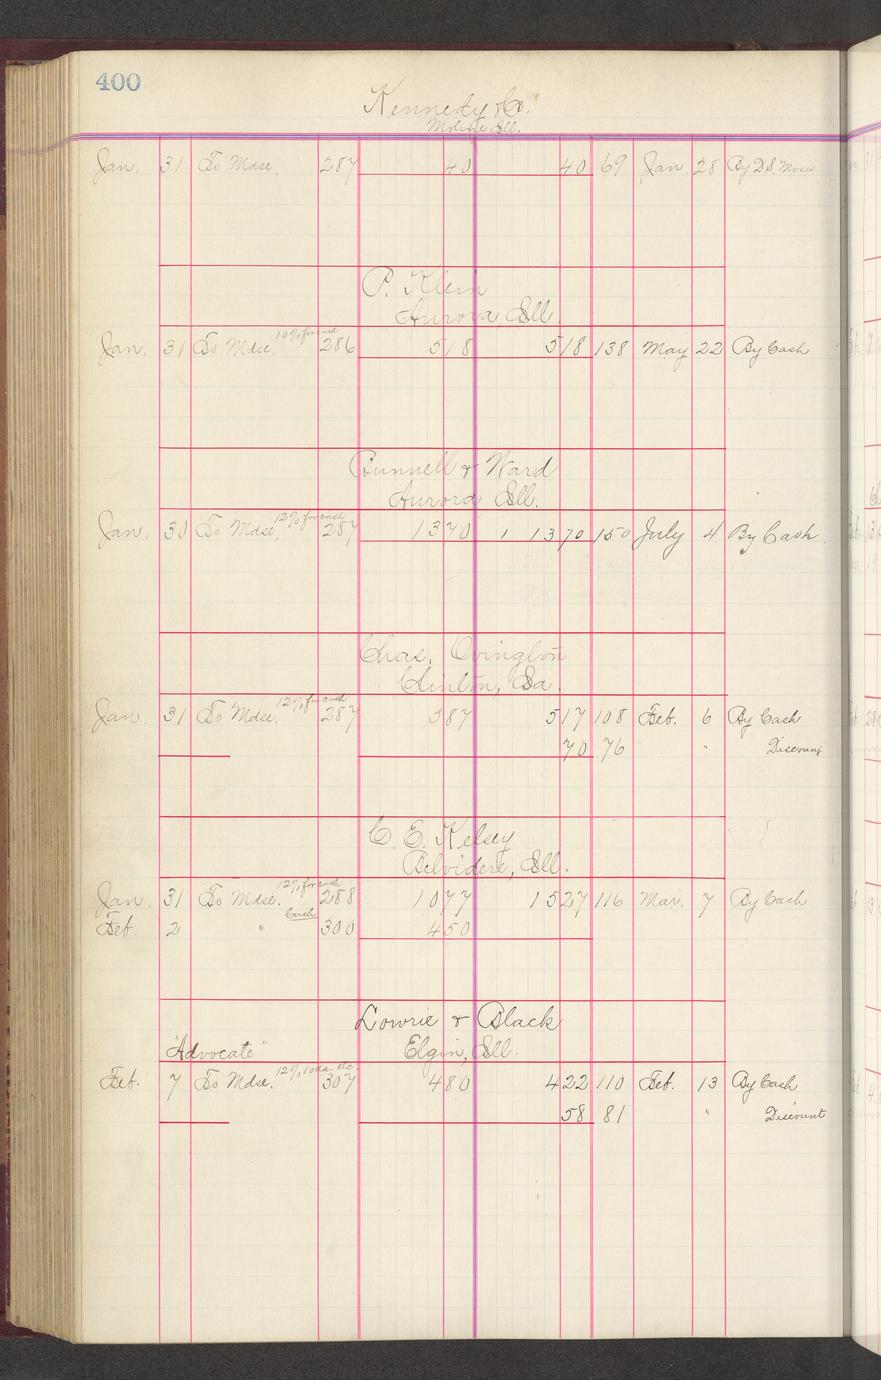 400
Kennedy & Co.
Moline Ill.
Jan. 31 To Mdse. 287 40 40 69 Jan 28 By D.S. Moses
P. Klein
Aurora, Ill.
10% for cash
Jan. 31 To Mdse. 286 518 518 138 May 22 By Cash
Bunnell & Ward
Aurora Ill.
12% for cash
Jan. 30 To Mdse. 287 1370 1 1370 150 July 4 By Cash
Chas. Ovington
Clinton, Ia.
12% for cash
Jan. 31 To Mdse. 287 587 517 108 Feb. 6 By Cash
70 76 " Discount
C. E. Kelsey
Belvidere, Ill.
12% for cash
Jan. 31 To Mdse. 288 1077 1527 116 Mar. 7 By Cash
Cash
Feb. 2 " 300 450
Lowrie & Black
"Advocate" Elgin, Ill.
12% 10 da.
Feb. 7 To Mdse. 307 480 422 110 Feb. 13 By Cash
58 81 " Discount